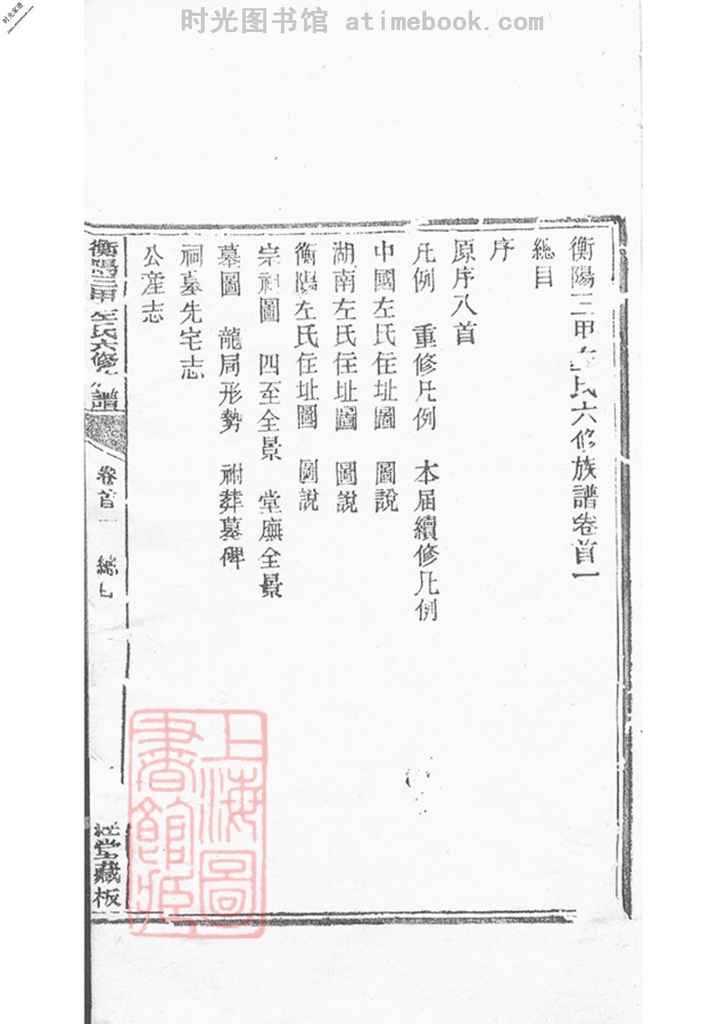 时光图书馆 atimebook.com
衡陽三甲左氏六修族譜卷首一
總目
序
原序八首
凡例 重修凡例 本届續修凡例
中國左氏住址圖 圖說
湖南左氏住址圖 圖說
衡陽左氏住址圖 圖說
宗祠圖 四至全景 堂廡全景
墓圖 龍局形勢 祔葬墓碑
祠墓先宅志
公產志
衡陽三甲左氏六修族譜
卷首一 總目
堂藏板
上海圖書館藏